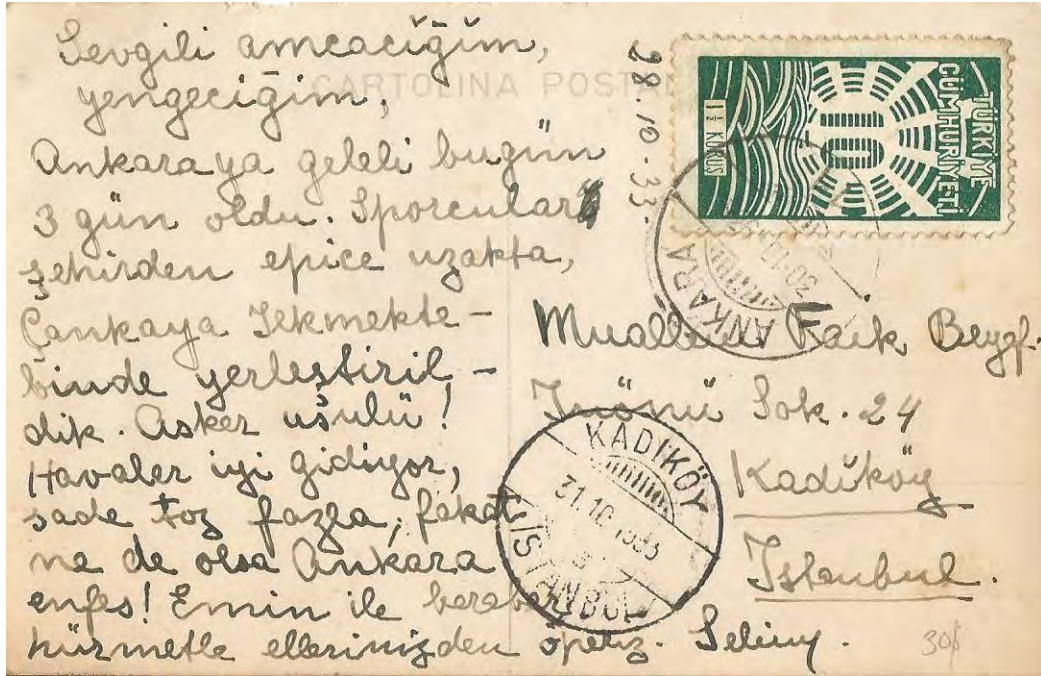 Sevgili amcacığım,
yengeciğim,
CARTOLINA POSTAL
Ankaraya geleli bugün
3 gün oldu. Sporcular
şehirden epice uzakta,
Çankaya Ilkmekte-
binde yerleştiril-
dik. Asker usulü!
Havaler iyi gidiyor,
sade toz fazla, fakat
ne de olsa Ankara
enfes! Emin ile beraber
hürmetle ellerinizden öperiz. Selim.
28.10.33.
TÜRKİYE
CÜMHURİYETİ
1½ KURUŞ
ANKARA
30.10
Muallim Faik Beyef.
İnönü Sok. 24
Kadıköy
Istanbul.
KADIKÖY
31.10.1933
İSTANBUL
30